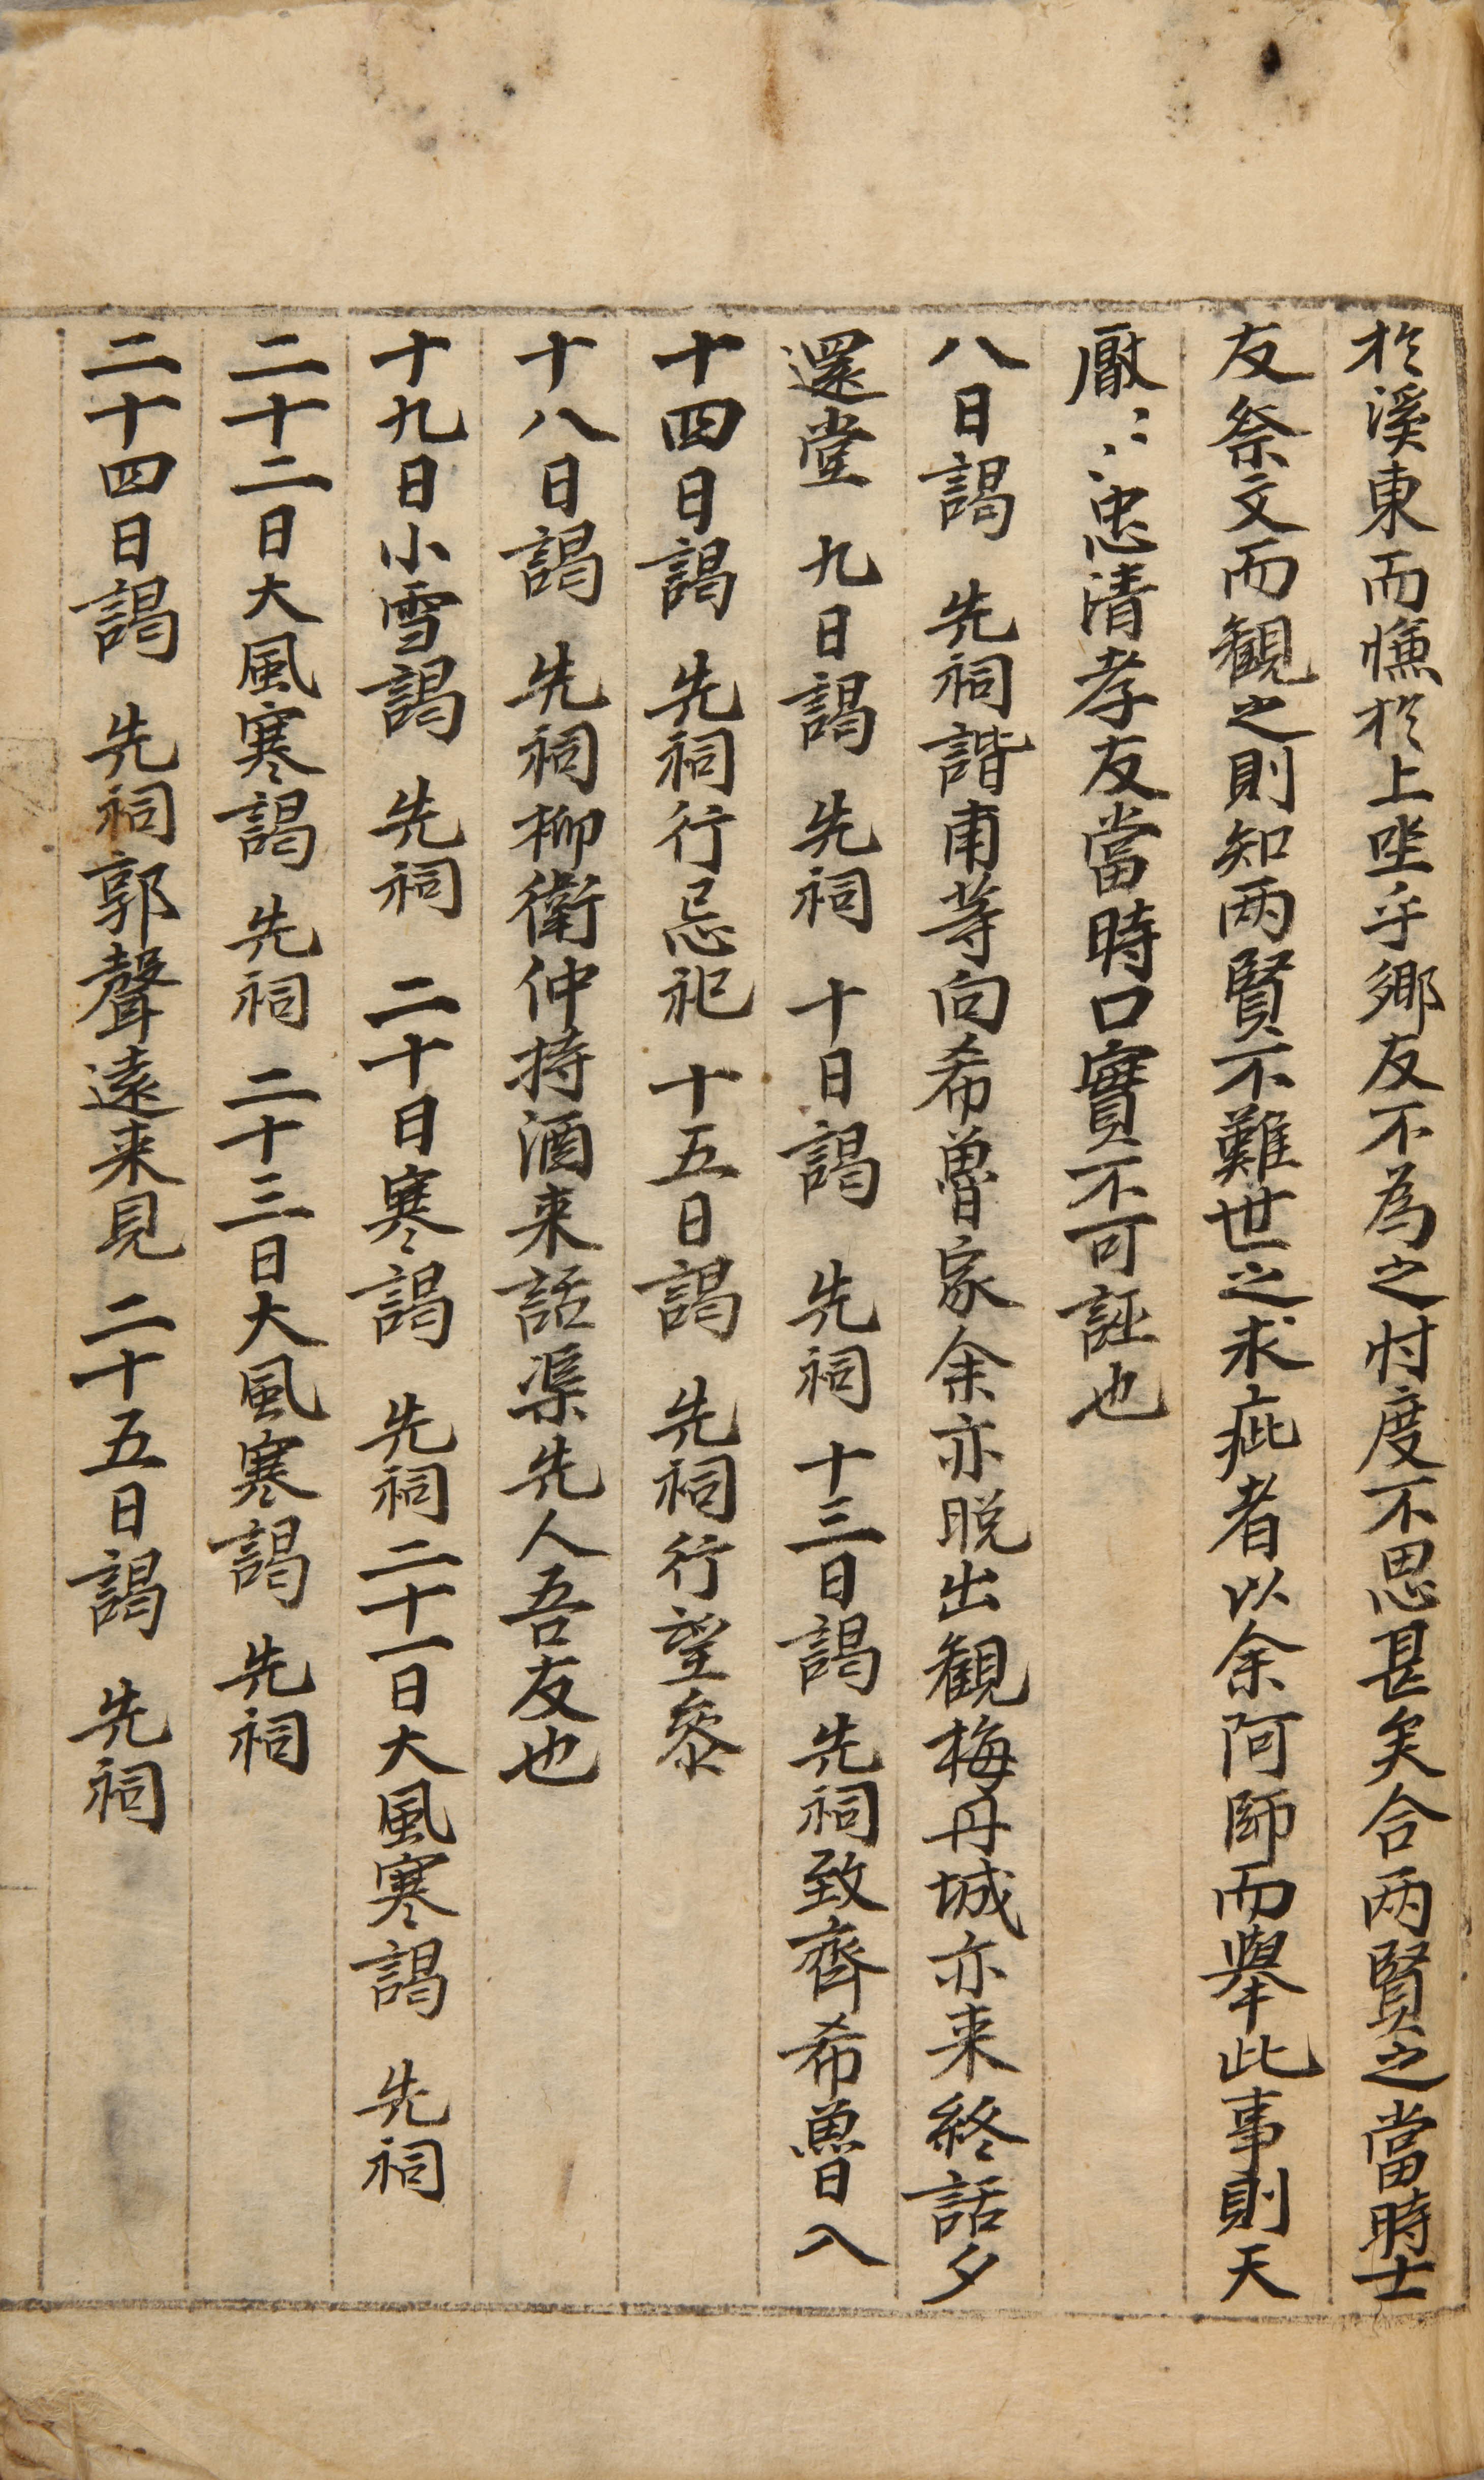 於溪東而慊於上坐乎鄕友不為之忖度不思甚矣合两賢之當時士
友祭文而観之則知两賢不難世之求疵者以余阿師而舉此事則天
厭〻〻忠清孝友當時口實不可誣也
八日謁　先祠諧甫等向希魯家余亦脱出観梅丹城亦来終話夕
還堂　九日謁　先祠　十日謁　先祠　十三日謁　先祠致齊希魯日入
十四日謁　先祠行忌祀　十五日謁　先祠行望叅
十八日謁　先祠柳衛仲持酒来話渠先人吾友也
十九日小雪謁　先祠　二十日寒謁　先祠　二十一日大風寒謁　先祠
二十二日大風寒謁　先祠　二十三日大風寒謁　先祠
二十四日謁　先祠郭聲遠来見　二十五日謁　先祠